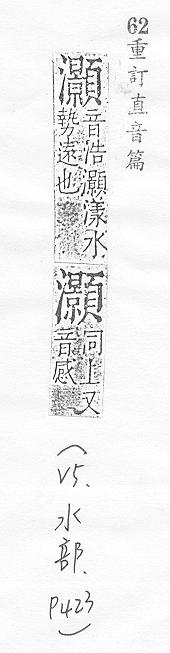 62重訂直音篇
灝音浩灝漾水
勢遠也
灝同上又
音感
(V5. 水部. P423)